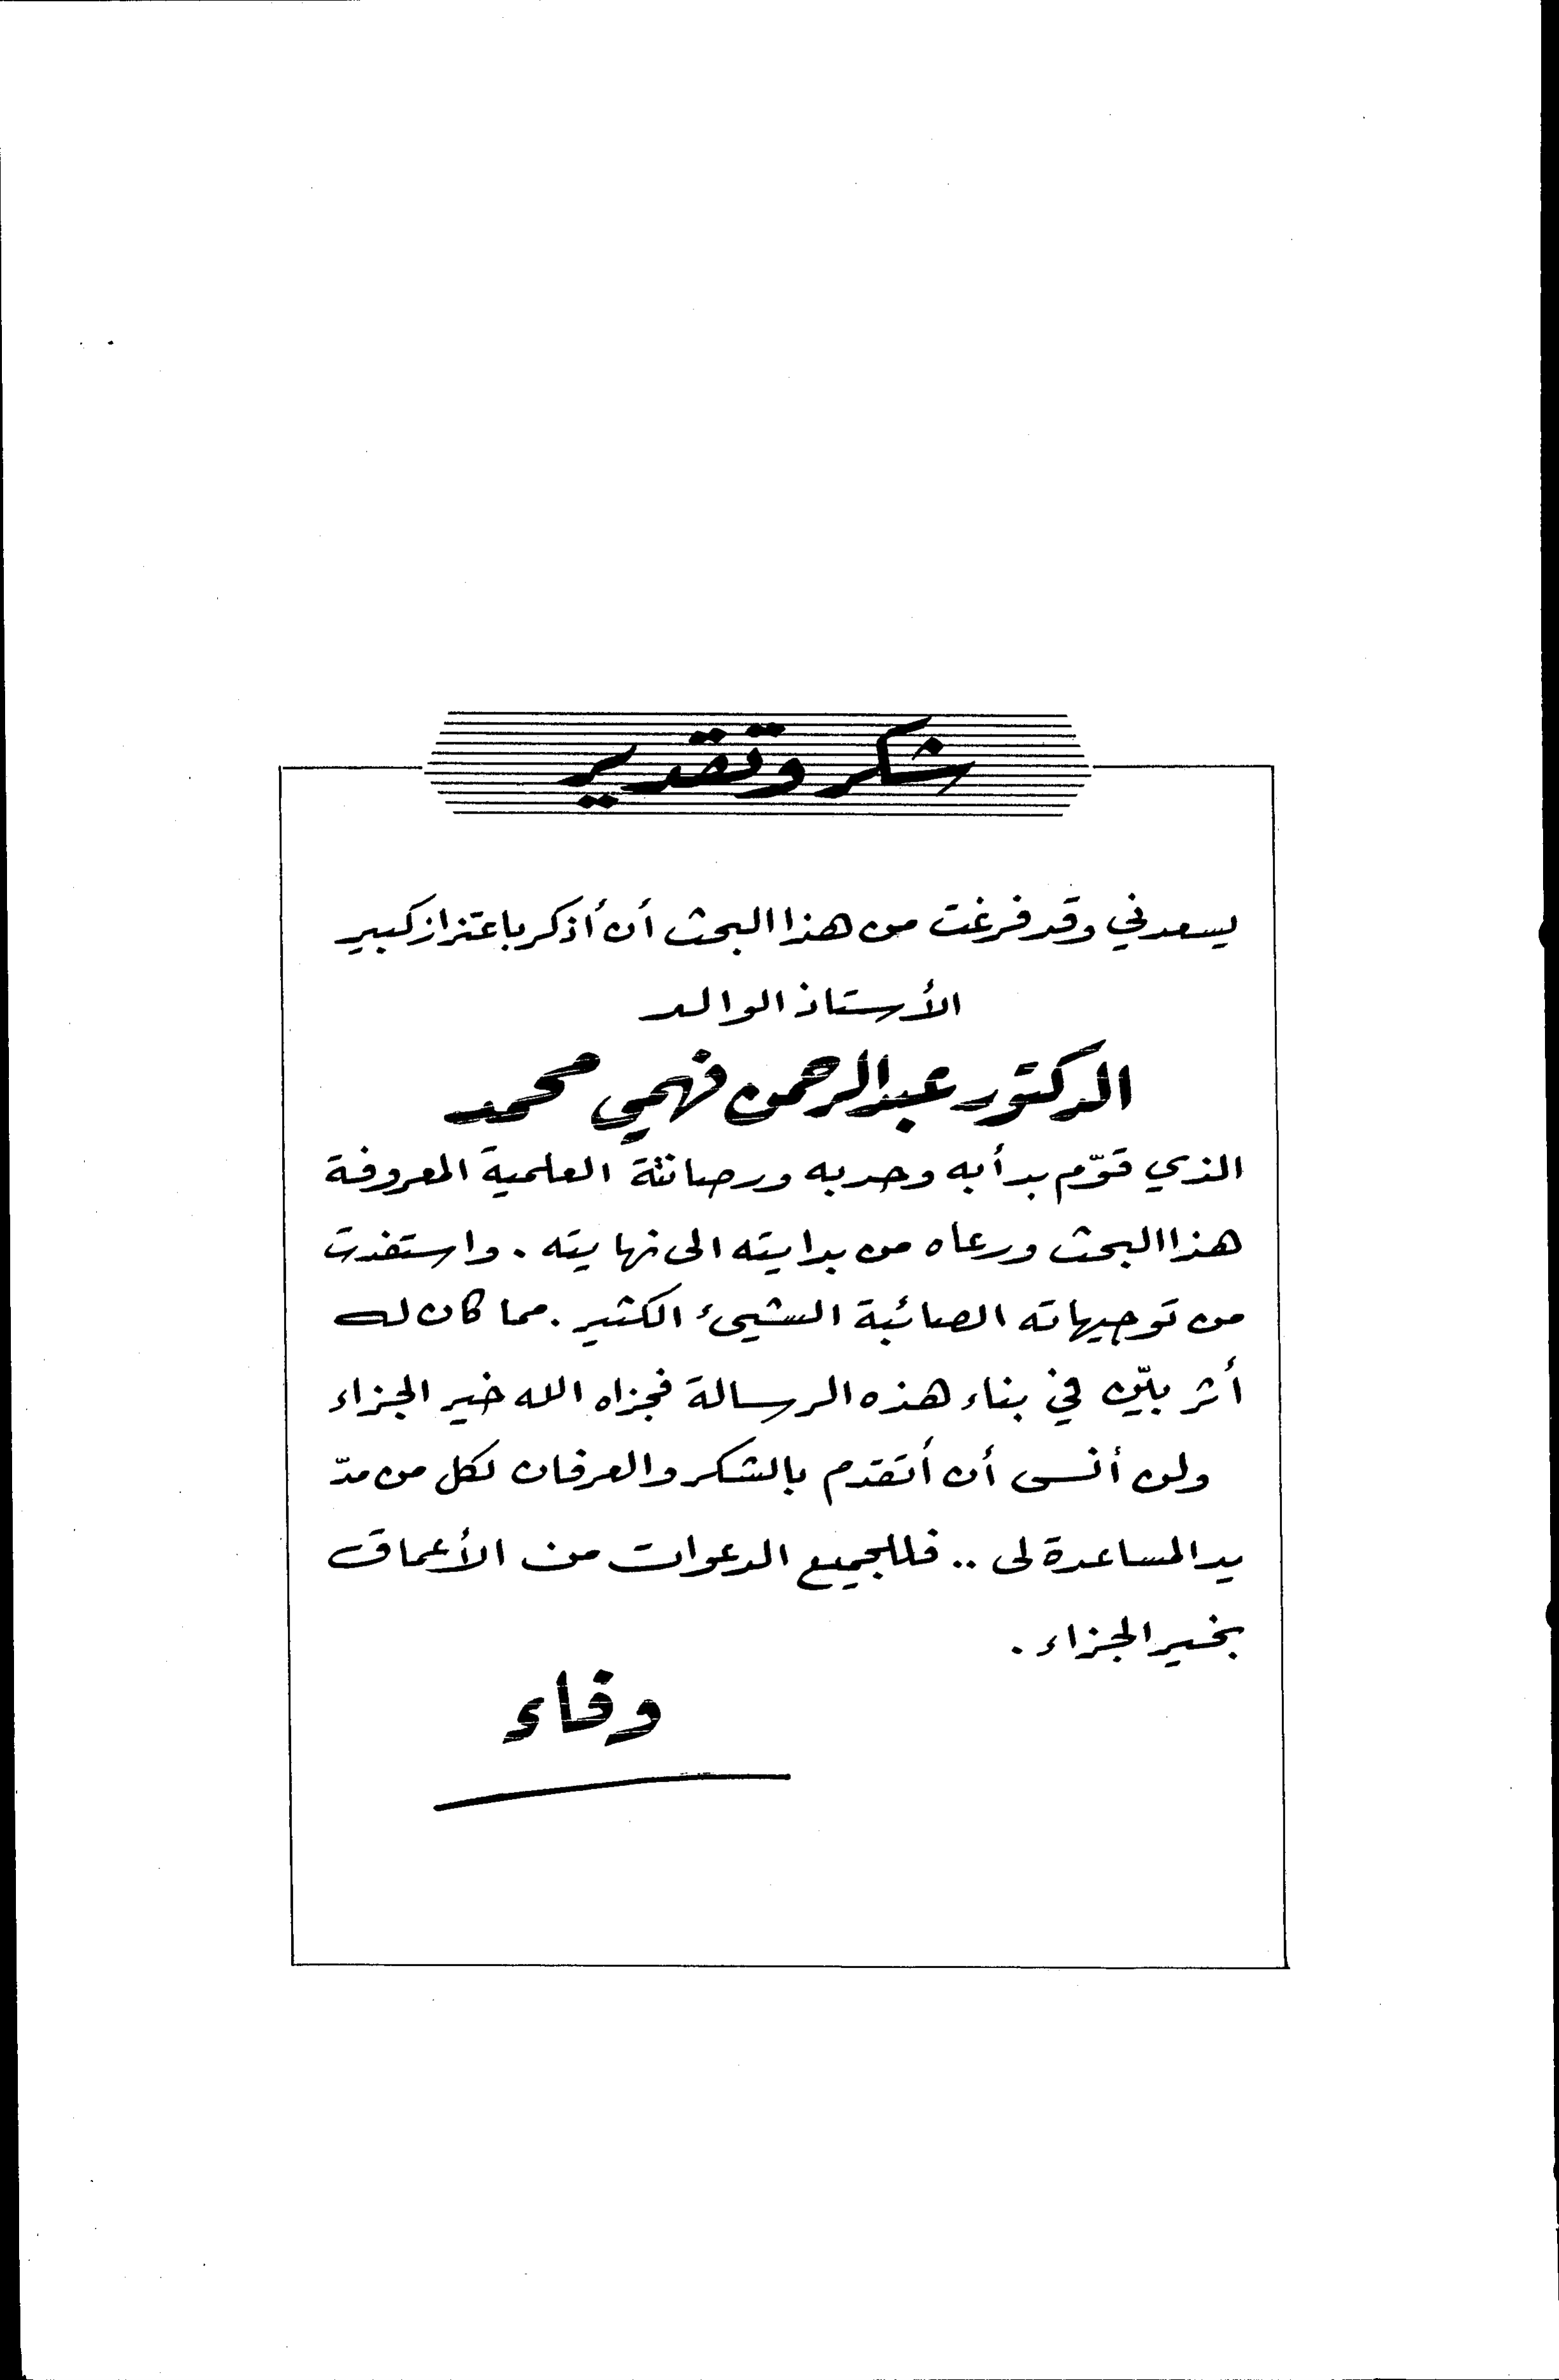 شكر وتقدير
يسعدني وقد فرغت من هذا البحث أن أذكر باعتزاز كبير
الأستاذ الوالد
الدكتور عبدالرحمن فهمي محمد
الذي قوّم بدأبه وحدبه ورصانتة العلمية المعروفة
هذا البحث ورعاه من بدايته الى نهايته . واستفدت
من توجيهاته الصائبة الشيئ الكثير . مما كان له
أثر بيّن في بناء هذه الرسالة فجزاه الله خير الجزاء
ولن أنسى أن أتقدم بالشكر والعرفان لكل من مدّ
يد المساعدة لى .. فللجميع الدعوات من الأعماق
بخير الجزاء .
وفاء